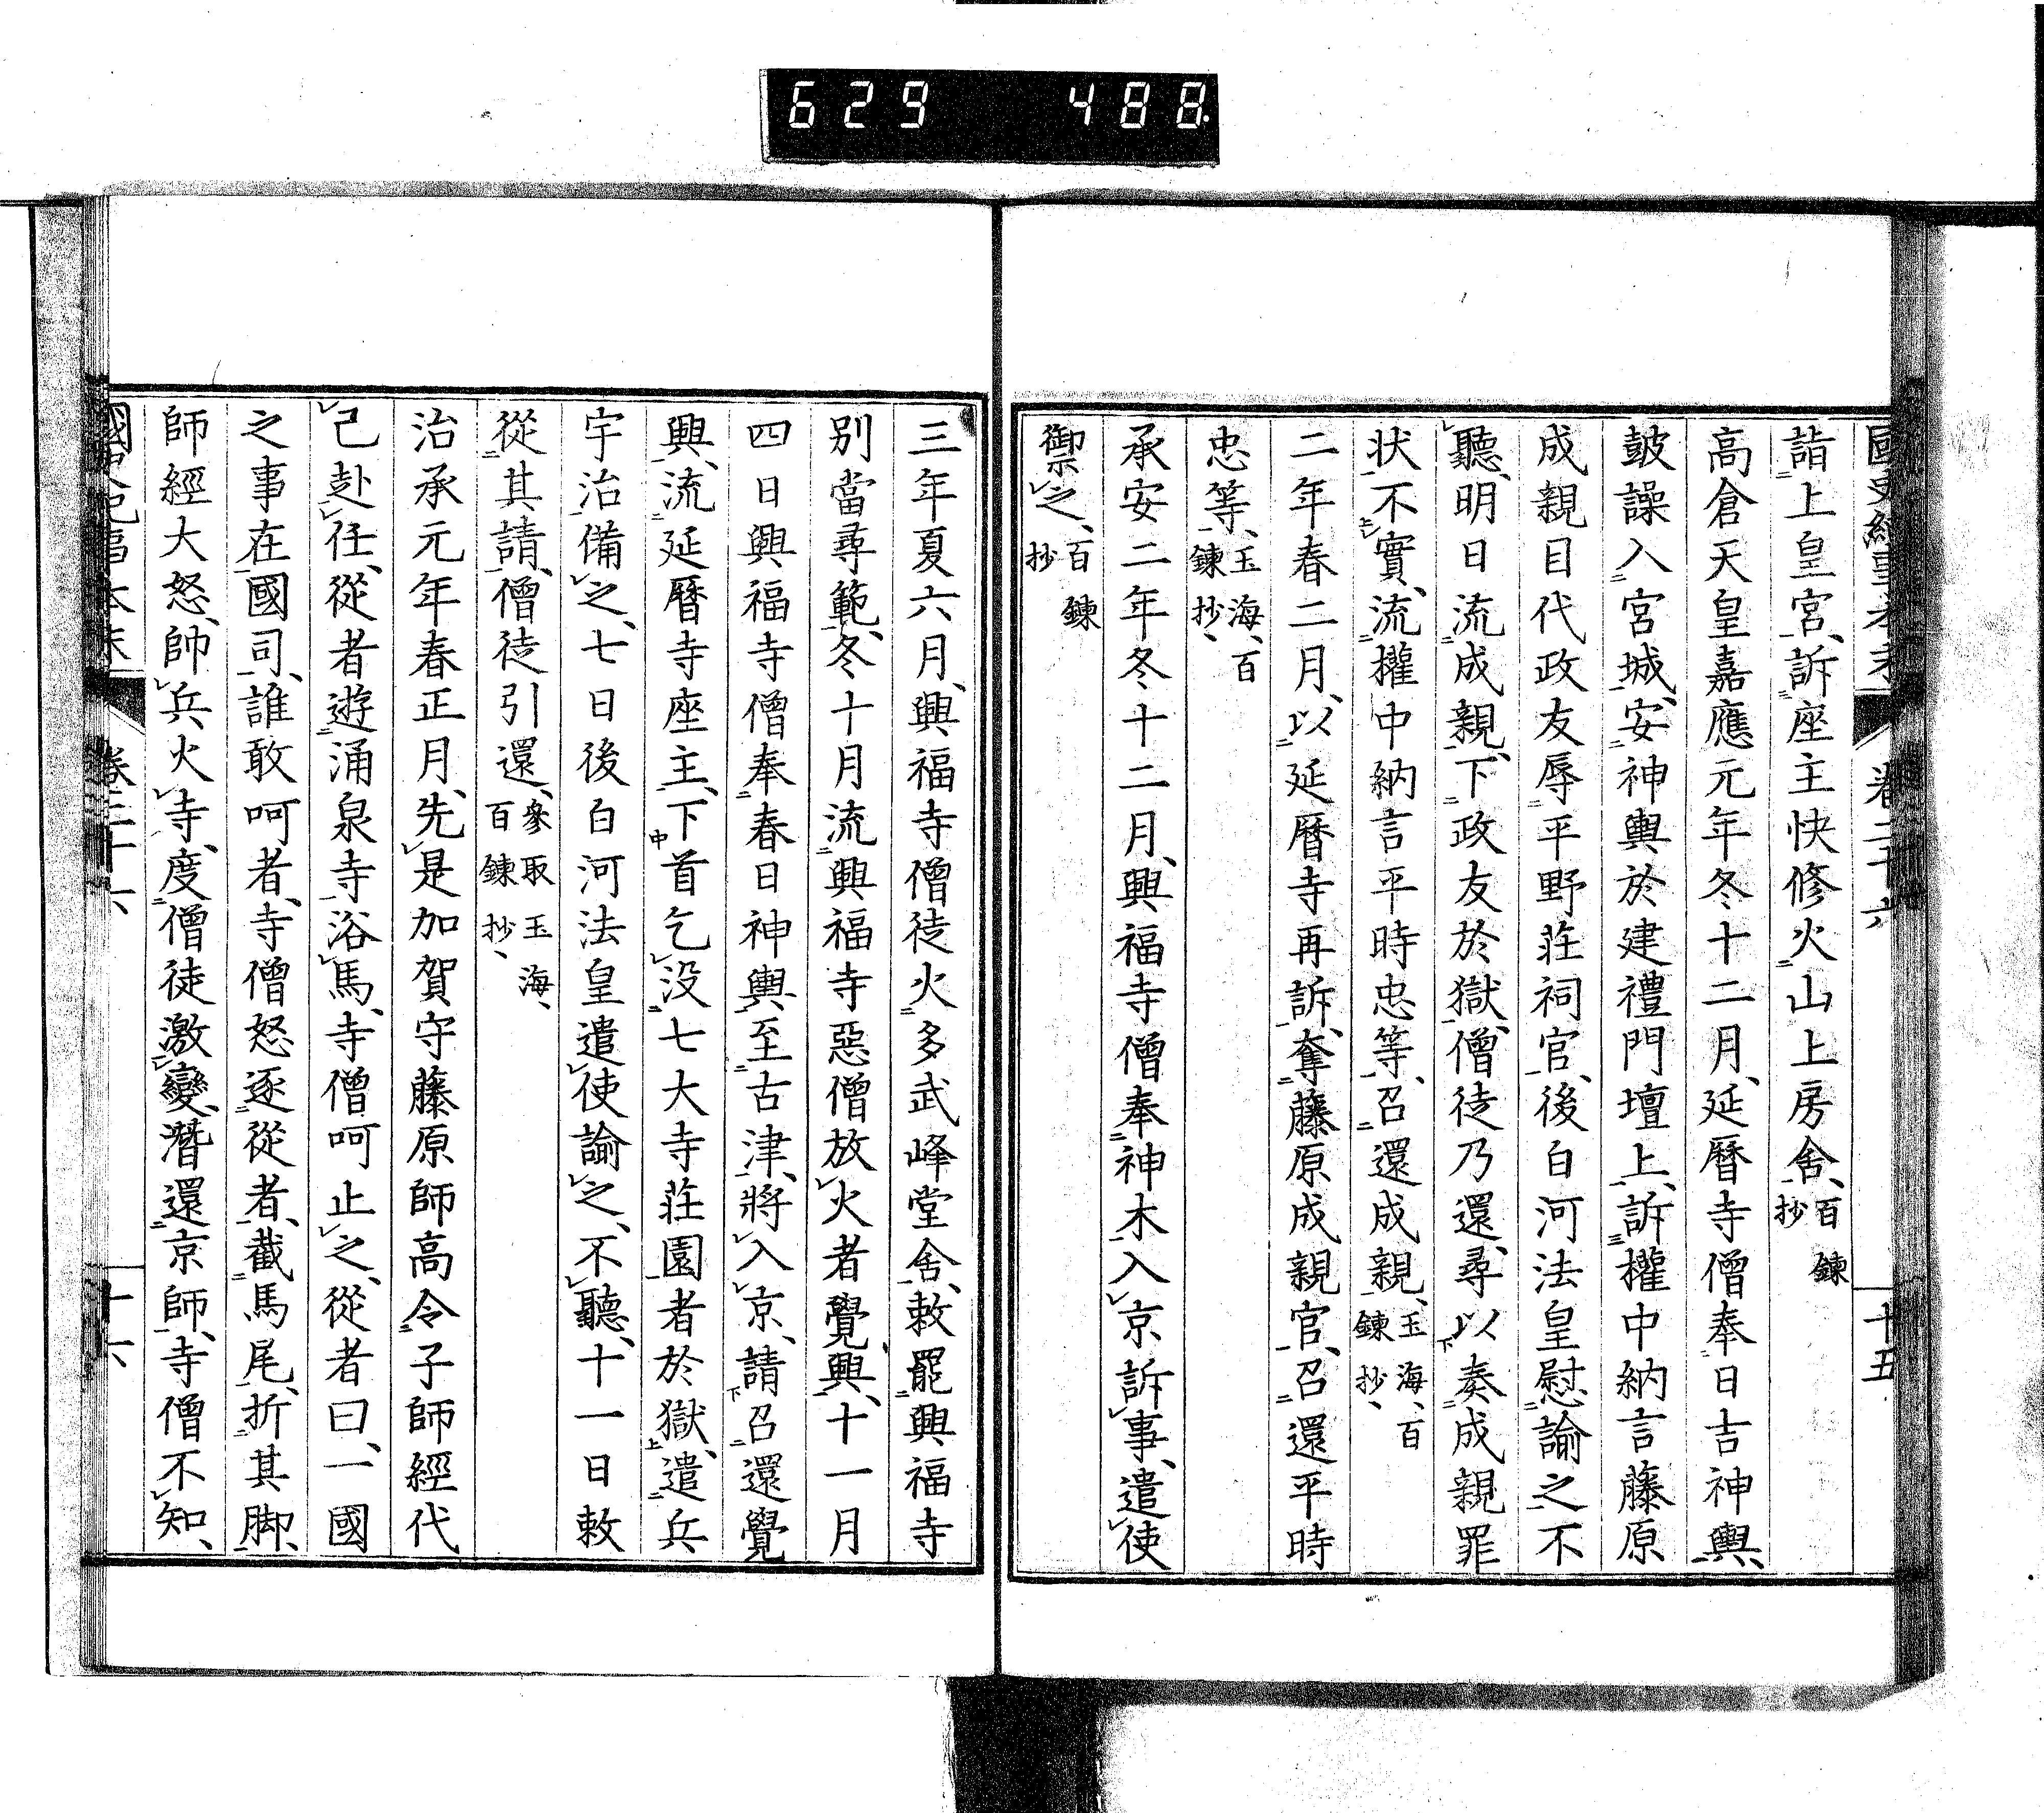 629 488
詣上皇宮、訴座主快修火山上房舍、百鍊抄
高倉天皇嘉應元年冬十二月、延曆寺僧奉日吉神輿、
鼓譟入宮城、安神輿於建禮門壇上、訴權中納言藤原
成親目代政友辱平野莊祠官、後白河法皇慰諭之不
聽、明日流成親、下政友於獄、僧徒乃還、尋以奏成親罪
狀不實、流權中納言平時忠等、召還成親、玉海、百鍊抄、
二年春二月、以延曆寺再訴、奪藤原成親官、召還平時
忠等、玉海、百鍊抄、
承安二年冬十二月、興福寺僧奉神木入京訴事、遣使
禦之、百鍊抄
卷二十六
十五
三年夏六月、興福寺僧徒火多武峰堂舍、敕罷興福寺
別當尋範、冬十月流興福寺惡僧放火者覺興、十一月
四日興福寺僧奉春日神輿、至古津、將入京、請召還覺
興、流延曆寺座主、下首乞没七大寺莊園者於獄、遣兵
宇治備之、七日後白河法皇遣使諭之、不聽、十一日敕
從其請、僧徒引還、參取玉海、百鍊抄、
治承元年春正月、先是加賀守藤原師高令子師經代
己赴任、從者遊涌泉寺浴馬、寺僧呵止之、從者曰、一國
之事在國司、誰敢呵者、寺僧怒逐從者、截馬尾、折其脚、
師經大怒、帥兵火寺、度僧徒激變、潛還京師、寺僧不知、